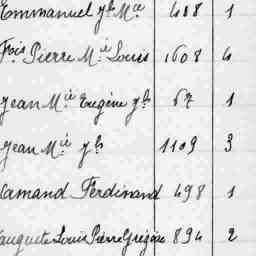 Emmanuel Jh Mie 488 1
Fois Pierre Mie Louis 1608 4
Jean Mie Eugène Jh 67 1
Jean Mie Jh 1109 3
Hamand Ferdinand 498 1
Louis Pierre Grégoire 894 2